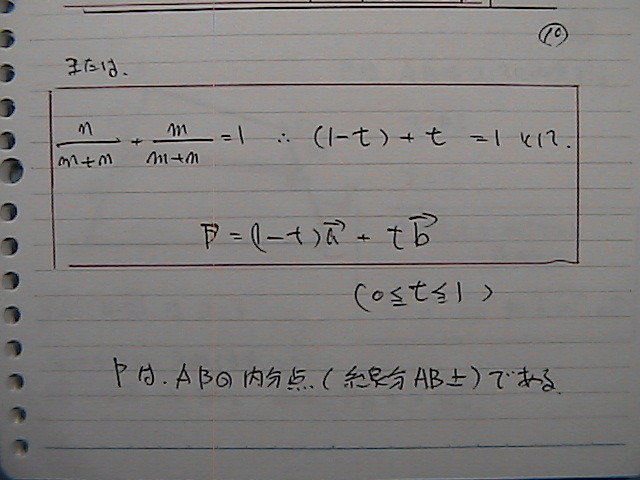 ⑩
または、
n/(m+n) + m/(m+n) = 1 ∴ (1-t) + t = 1 として.
P⃗ = (1-t)a⃗ + t b⃗
(0≦t≦1)
Pは、ABの内分点、(線分AB上)である。